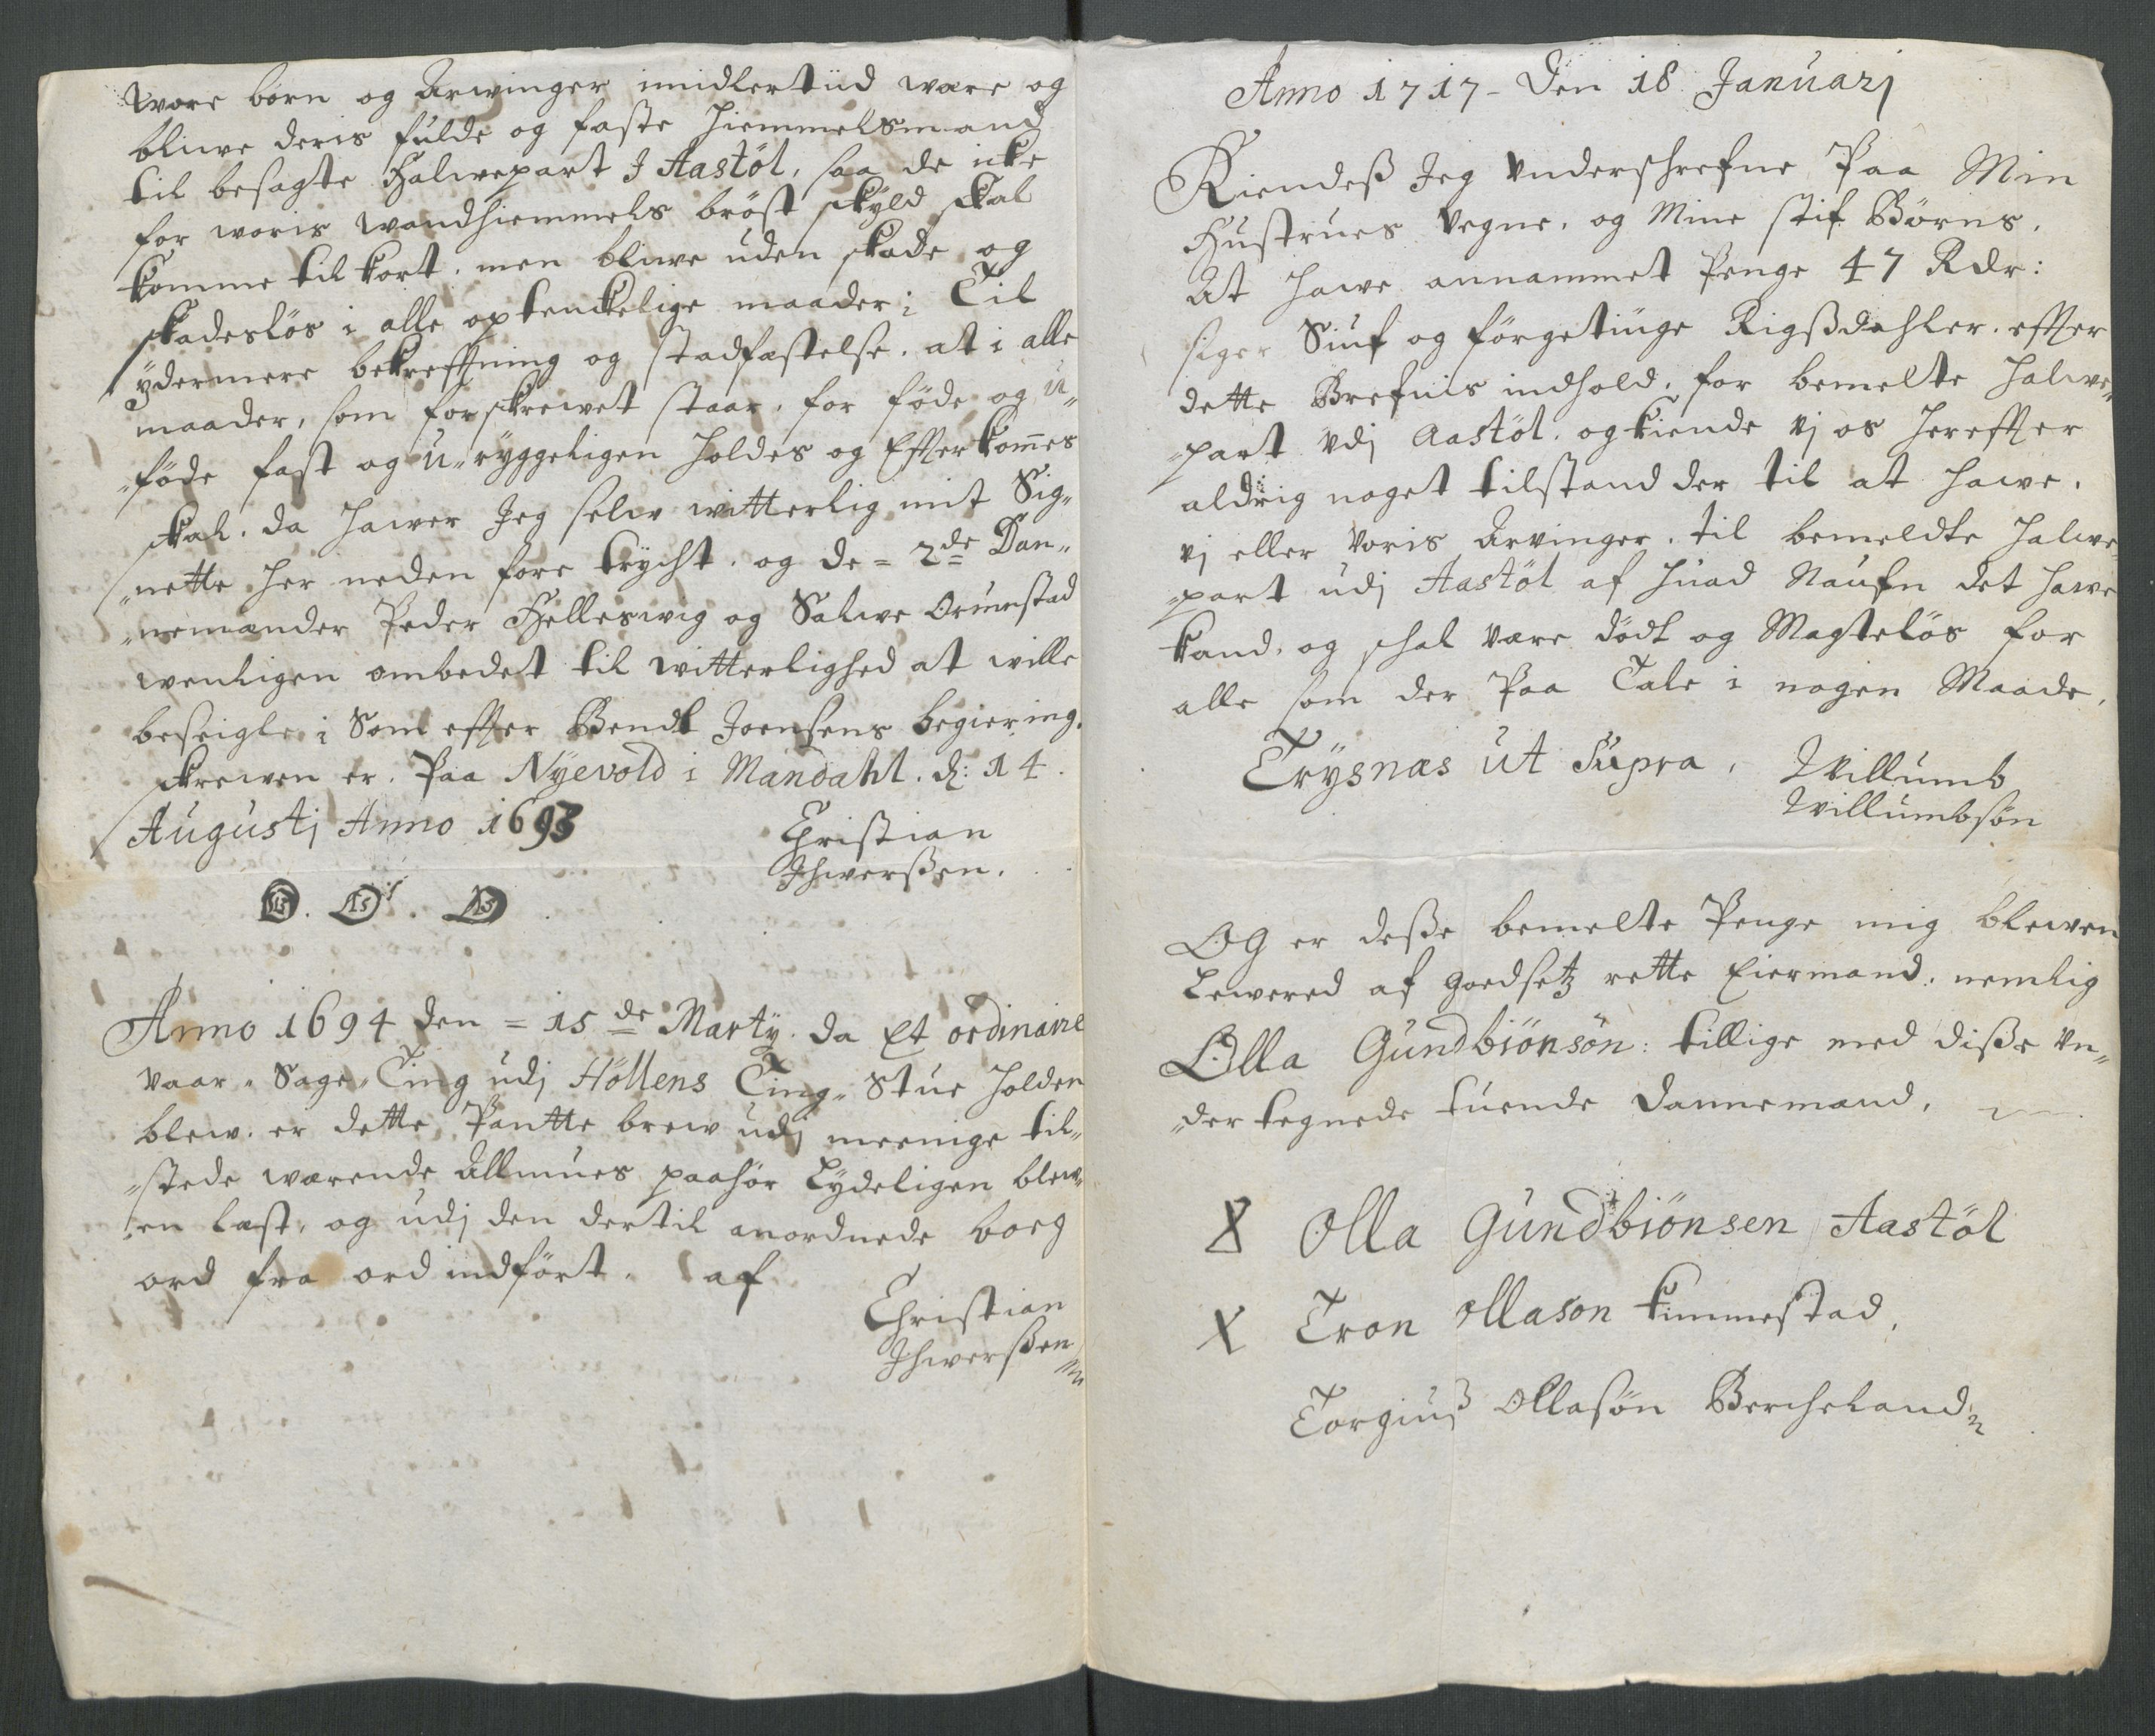 wore börn og Arwinger imidlertiid wære og
bliwe deris fulde og faste Hiemmelsmand
til besagte Halwepart J Aastöl, saa de icke
for woris wandhiemmels bröst skyld skal
komme til kort. men bliwe uden skade og
skadeslös i alle optenckelige maader; Til
ÿdermere bekreffning og stadfæstelse. at i alle
maader, som forskrewet staar, for föde og u„
„föde fast og u„ryggeligen Holdes og Efterkom̄es
skal. da Hawer Jeg selw witterlig mit Sig„
„nette Her neden fore trycht. og de = 2de Dan„
„nemænder Peder Helleswig og Salwe Orumstad
wenligen ombedet til witterlighed at wille
beseigle; Som effter Bendt Joensens begiering.
skrewen er. Paa Nyevold i Mandahl. d: 14.
Augustj Anno 1693
Christian
Jhwerßen.
Anno 1694 den = 15de Martÿ. da Et ordinaire
Vaar„Sage„Ting udj Höllens Ting„Stue Holden
blew. er dette Pantte brew udj meenige til„
„stede wærende Allmues paahör Lydeligen blew„
„en læst, og udj den dertil anordnede boeg
ord fra ord indfört. af
Christian
Jhwerßen
Anno 1717 - Den 18 Januarj
Kiendeß Jeg Underschrefne Paa Min
Hustrues Vegne, og Mine stif Börns.
At Hawe annammet Penge 47 Rdr:
siger Siuf og förgetiuge Rigßdahler. effter
dette Brefuis indhold. for bemelte Halwe„
„part Vdj Aastöl. og kiende Vj os Hereffter
aldrig noget tilstand der til at Hawe.
Vj eller Voris Arvinger. til bemeldte Halwe„
„part udj Aastöl af Huad Naufn det Hawe
kand. og schal være Dödt og Magtelös for
alle som der Paa Tale i nogen Maade.
Trÿsnæs ut Supra.
Willumb
Willumbsön
OG er deße bemelte Penge mig blewen
Lewered af goedsetz rette Eiermand: nemlig
Olla Gundbiönsön: tillige med diße Un„
„dertegnede tuende Dannemænd.
X Olla Gundbiönsen Aastöl
X Tron ollason kimmestad.
Torgiuß ollasön Bercheland